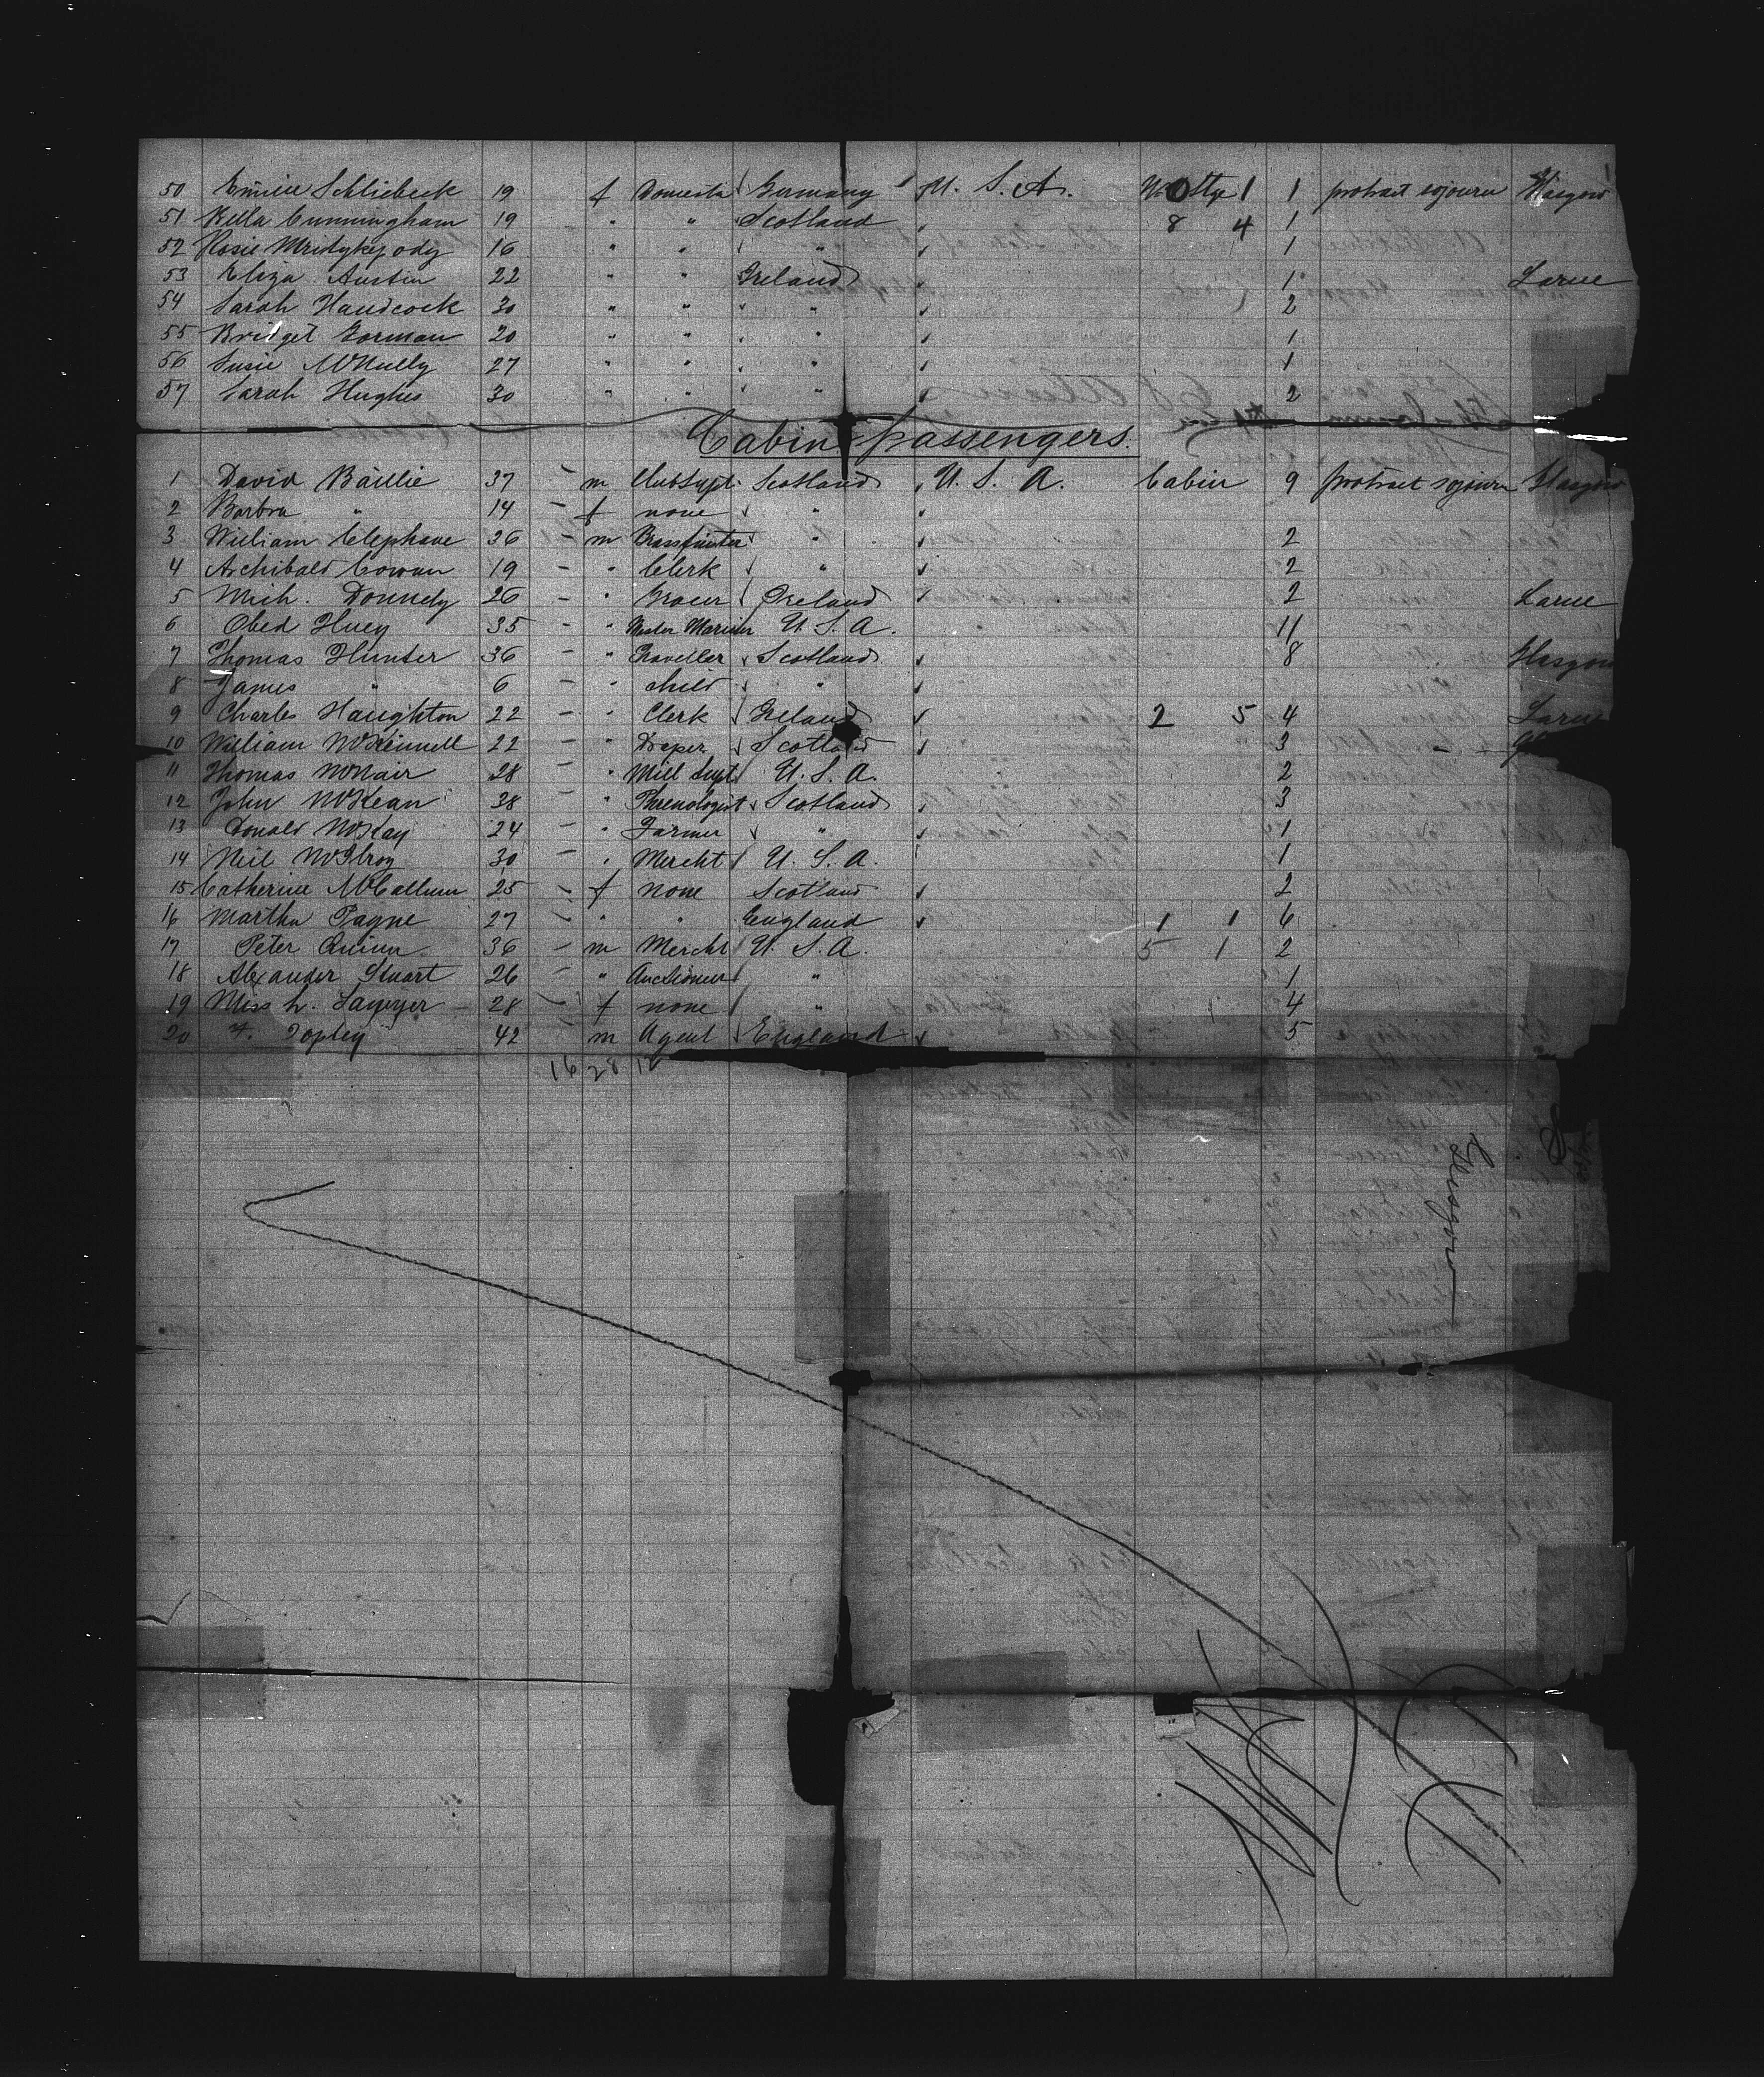 50 Emilie Schliebeck 19 f Domestic Germany U. S. A. 1 protract sojourn Glasgow
51 Bella Cunningham 19 " " Scotland 8 4 1
52 Rosie 16 " " " 1
53 Eliza Austin 22 " " Ireland 1 Larne
54 Sarah Handcock 30 " " " 2
55 Bridget Gorman 20 " " " 1
56 Susie McNully 27 " " " 1
57 Sarah Hughes 30 " " " 2
Cabin passengers.
1 David Baillie 37 - m Club Supt. Scotland U. S. A. Cabin 9 protract sojourn Glasgow
2 Barbra " 14 - f none "
3 William Clephane 36 - m Brassfinter " 2
4 Archibald Cowan 19 - " Clerk " 2
5 Mich. Donnely 26 - " Grocer Ireland 2 Larne
6 Obed Huey 35 - " Master Mariner U. S. A. 11
7 Thomas Hunter 36 - " Traveller Scotland 8 Glasgow
8 James " 6 - " child "
9 Charles Haughton 22 - " Clerk Ireland 2 5 4 Larne
10 William McKinnell 22 - " Draper Scotland 3
11 Thomas McNair 28 - " Mill Supt U. S. A. 2
12 John McKean 38 - " Phrenologist Scotland 3
13 Donald McKay 24 - " Farmer " 1
14 Neil McIlroy 30 - " Mercht U. S. A. 1
15 Catherine McCallum 25 - f none Scotland 2
16 Martha Payne 27 - " " England 1 1 6
17 Peter Quinn 36 - m Mercht U. S. A. 5 1 2
18 Alexander Stuart 26 - " Auctioneer " 1
19 Miss L. Sawyer 28 - f none " 4
20 Topley 42 - m Agent England 5
16 28 12
Glasgow